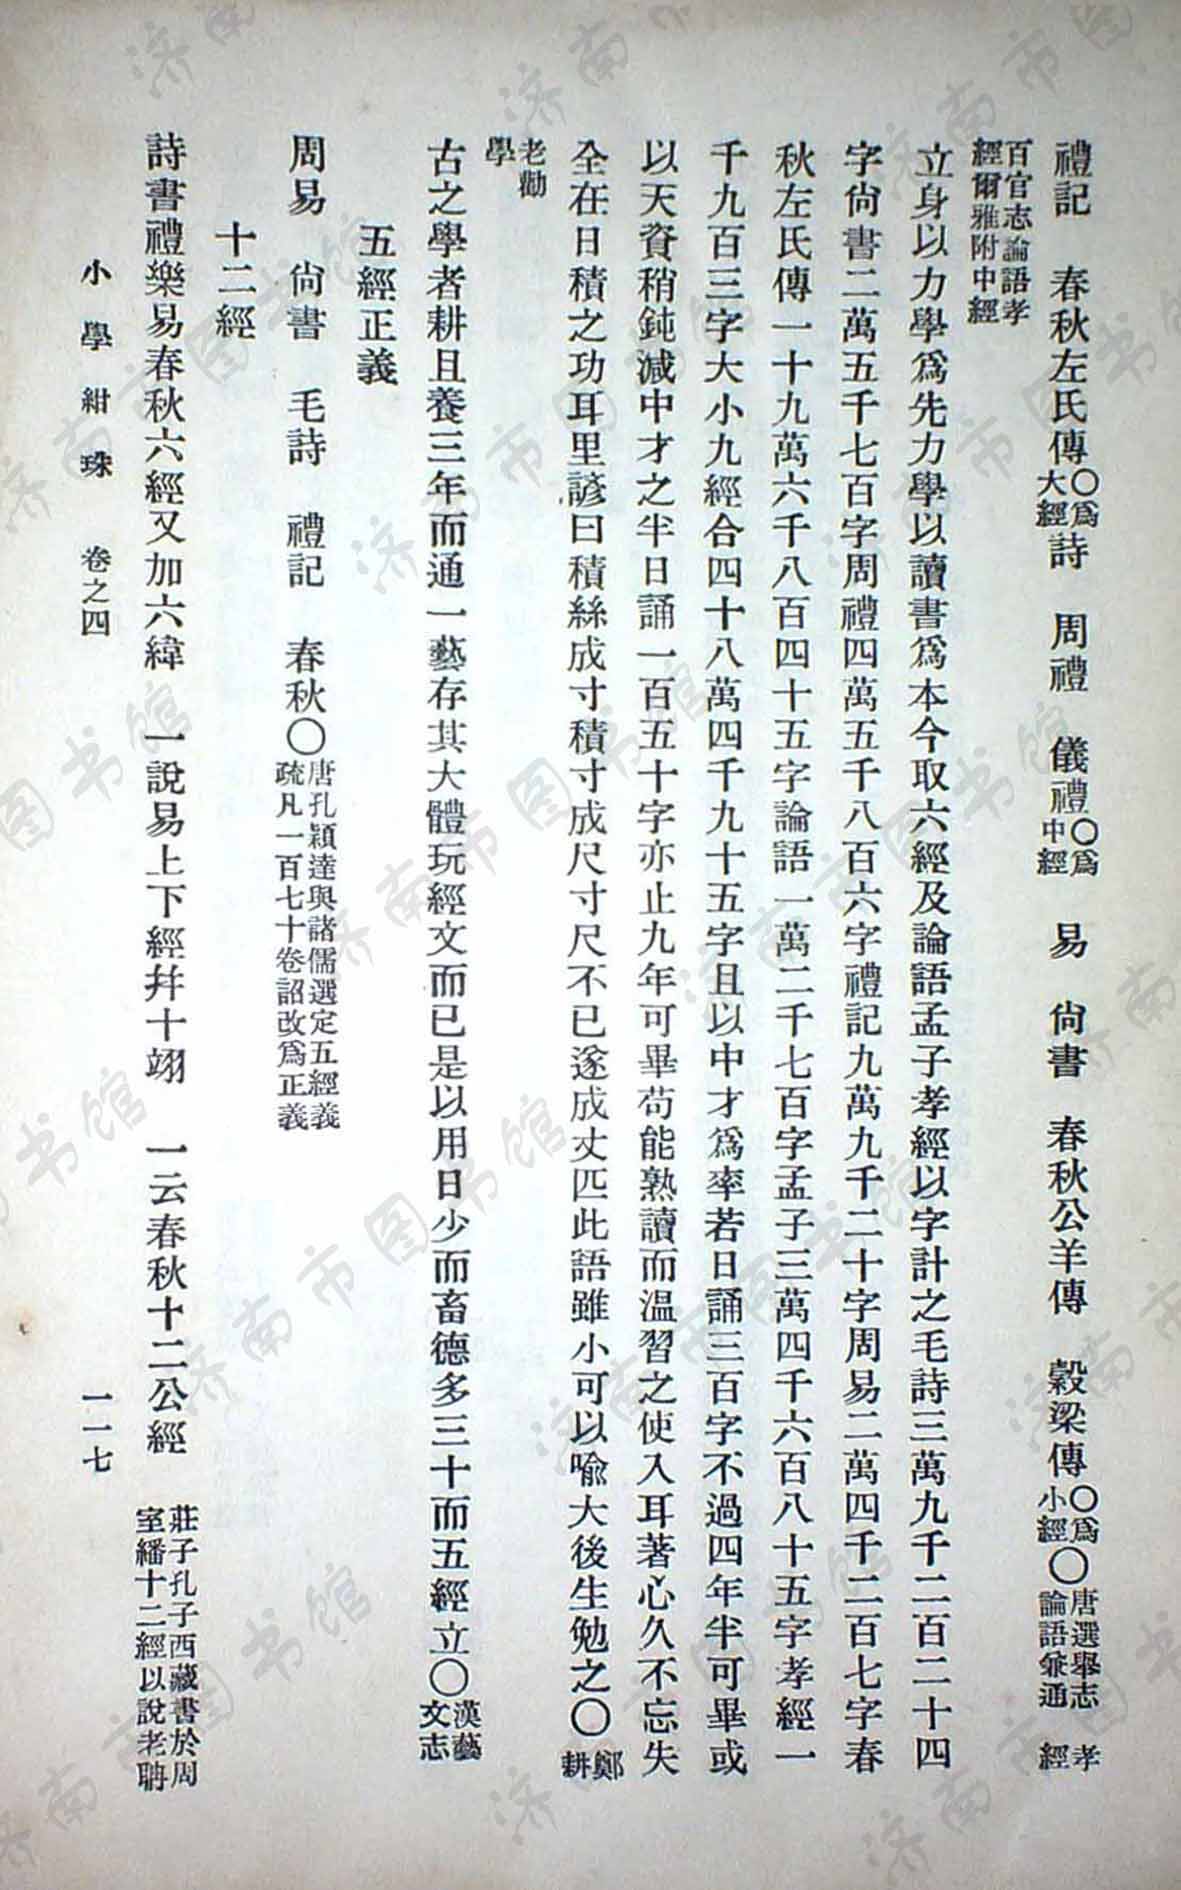 禮記　春秋左氏傳〇爲大經詩　周禮　儀禮〇爲中經　易　尙書　春秋公羊傳　穀梁傳〇爲小經〇唐選舉志　孝論語兼通　經
百官志論語孝經爾雅附中經
立身以力學爲先力學以讀書爲本今取六經及論語孟子孝經以字計之毛詩三萬九千二百二十四
字尙書二萬五千七百字周禮四萬五千八百六字禮記九萬九千二十字周易二萬四千二百七字春
秋左氏傳一十九萬六千八百四十五字論語一萬二千七百字孟子三萬四千六百八十五字孝經一
千九百三字大小九經合四十八萬四千九十五字且以中才爲率若日誦三百字不過四年半可畢或
以天資稍鈍減中才之半日誦一百五十字亦止九年可畢苟能熟讀而溫習之使入耳著心久不忘失
全在日積之功耳里諺曰積絲成寸積寸成尺寸尺不已遂成丈匹此語雖小可以喻大後生勉之〇鄭耕
老勸學
古之學者耕且養三年而通一藝存其大體玩經文而已是以用日少而畜德多三十而五經立〇漢藝文志
五經正義
周易　尙書　毛詩　禮記　春秋〇唐孔穎達與諸儒選定五經義疏凡一百七十卷詔改爲正義
十二經
詩書禮樂易春秋六經又加六緯　一說易上下經幷十翊　一云春秋十二公經　莊子孔子西藏書於周室繙十二經以說老聃
小學紺珠　卷之四　一一七
济南市图书馆